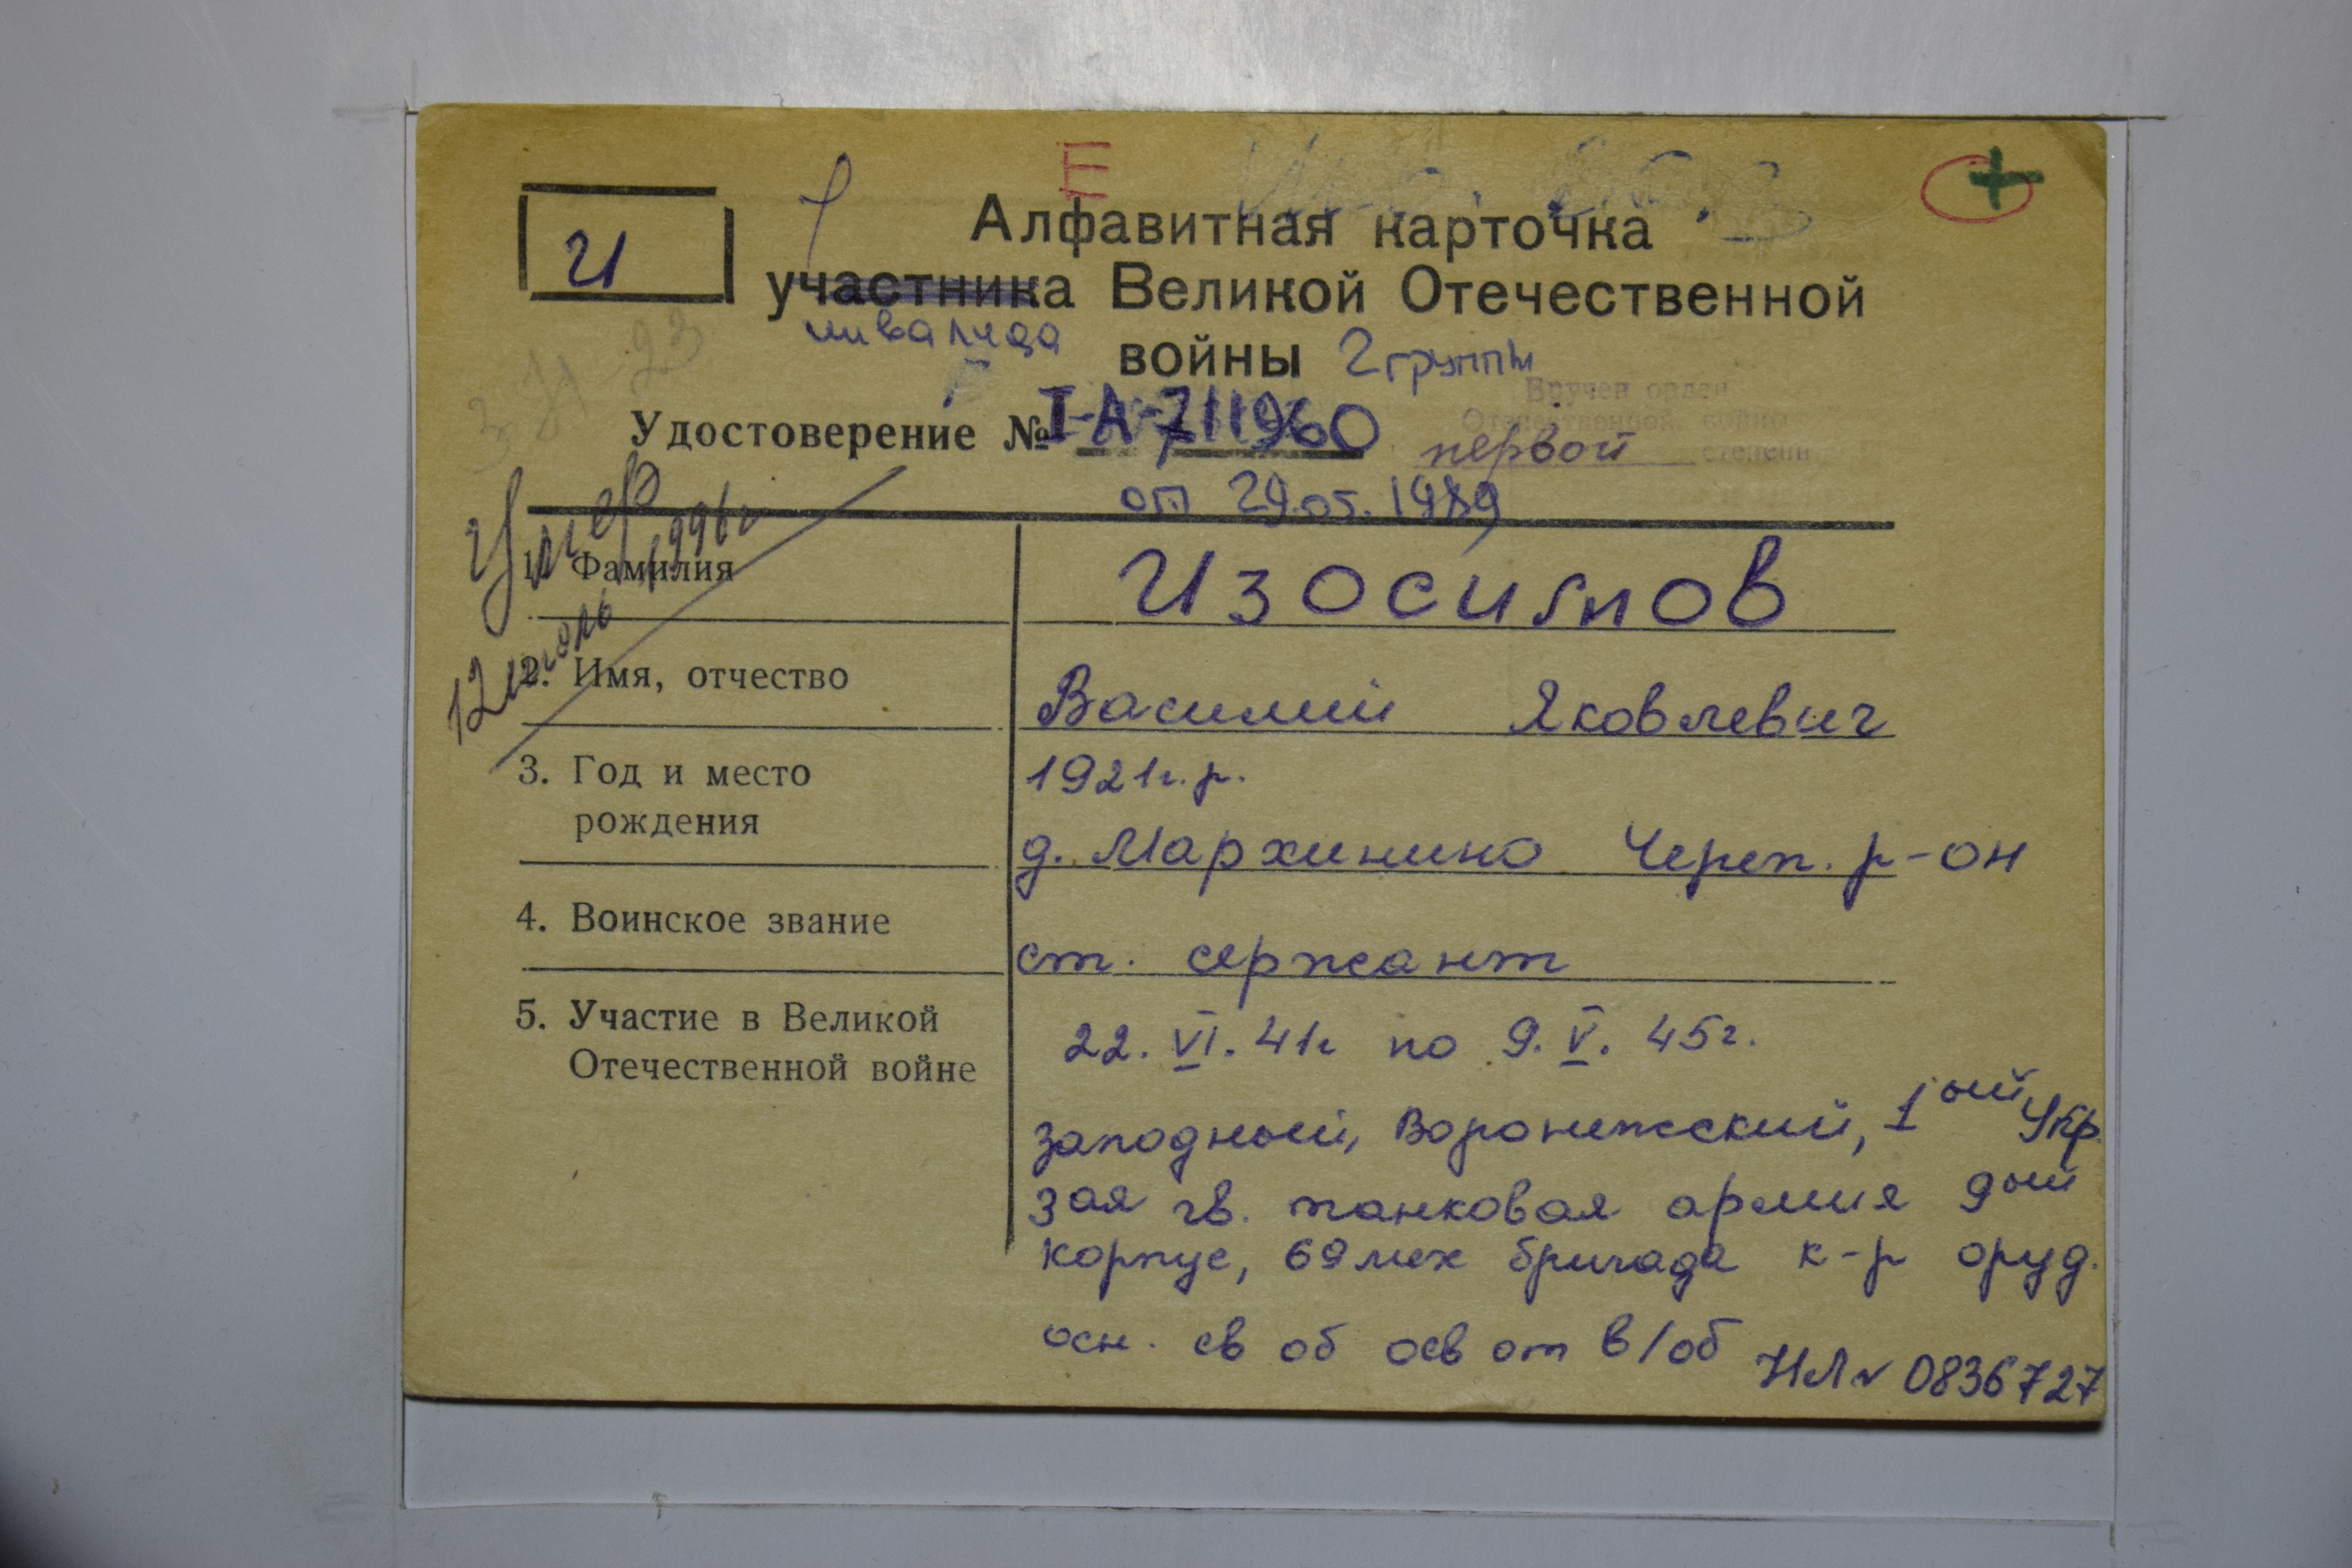 Е
+
И
Алфавитная карточка
участника Великой Отечественной
инвалида
войны 2 группы
3-71-23
Вручен орден
Отечественной войны
первой степени
Удостоверение № I-А-711960
от 29.05.1989
Умер
12 июль 1996г
1. Фамилия Изосимов
2. Имя, отчество Василий Яковлевич
3. Год и место 1921г.р.
рождения д. Мархинино Череп. р-он
4. Воинское звание ст. сержант
5. Участие в Великой 22. VI. 41г по 9. V. 45г.
Отечественной войне
западный, Воронежский, 1ый Укр.
3ая гв. танковая армия 9ый
корпус, 69 мех бригада к-р оруд.
осн. св об осв от в/об НЛ № 0836727